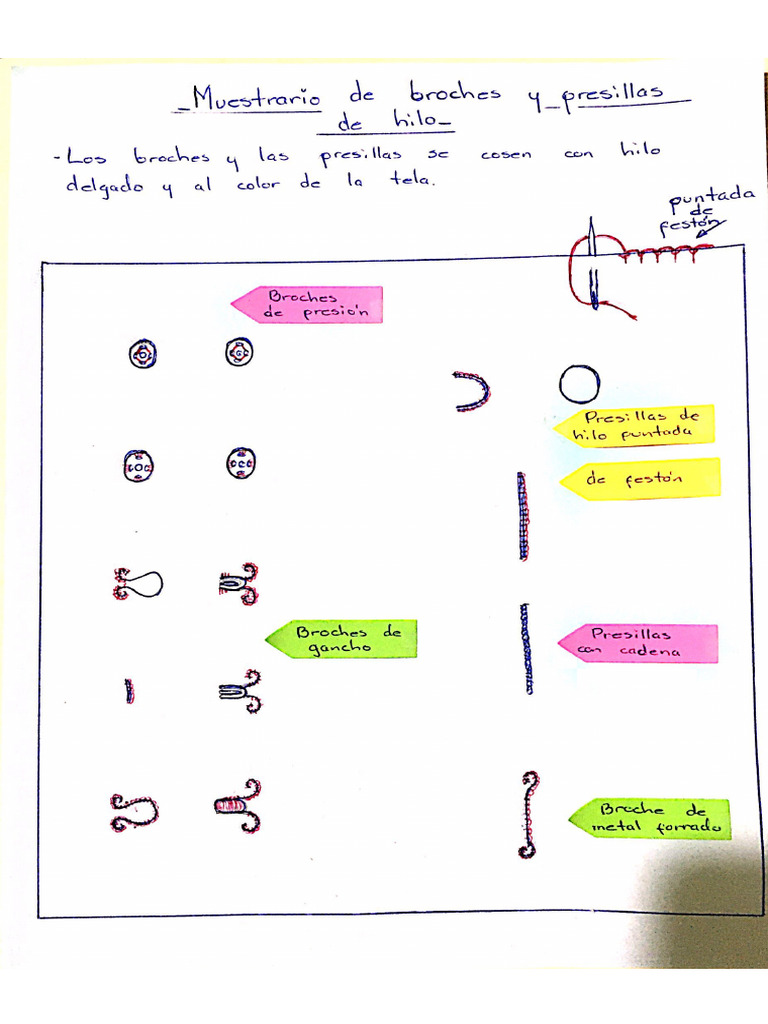 _Muestrario de broches y_presillas
de hilo_
- Los broches y las presillas se cosen con hilo
delgado y al color de la tela.
puntada
de
festón
Broches
de presión
Presillas de
hilo puntada
de festón
Broches de
gancho
Presillas
con cadena
Broche de
metal forrado